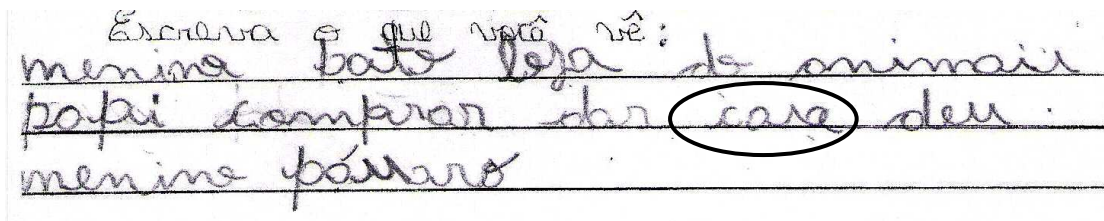 Escreva o que você vê:
menina pato loja de animais
papai comprar dar casa deu.
menina pássaro